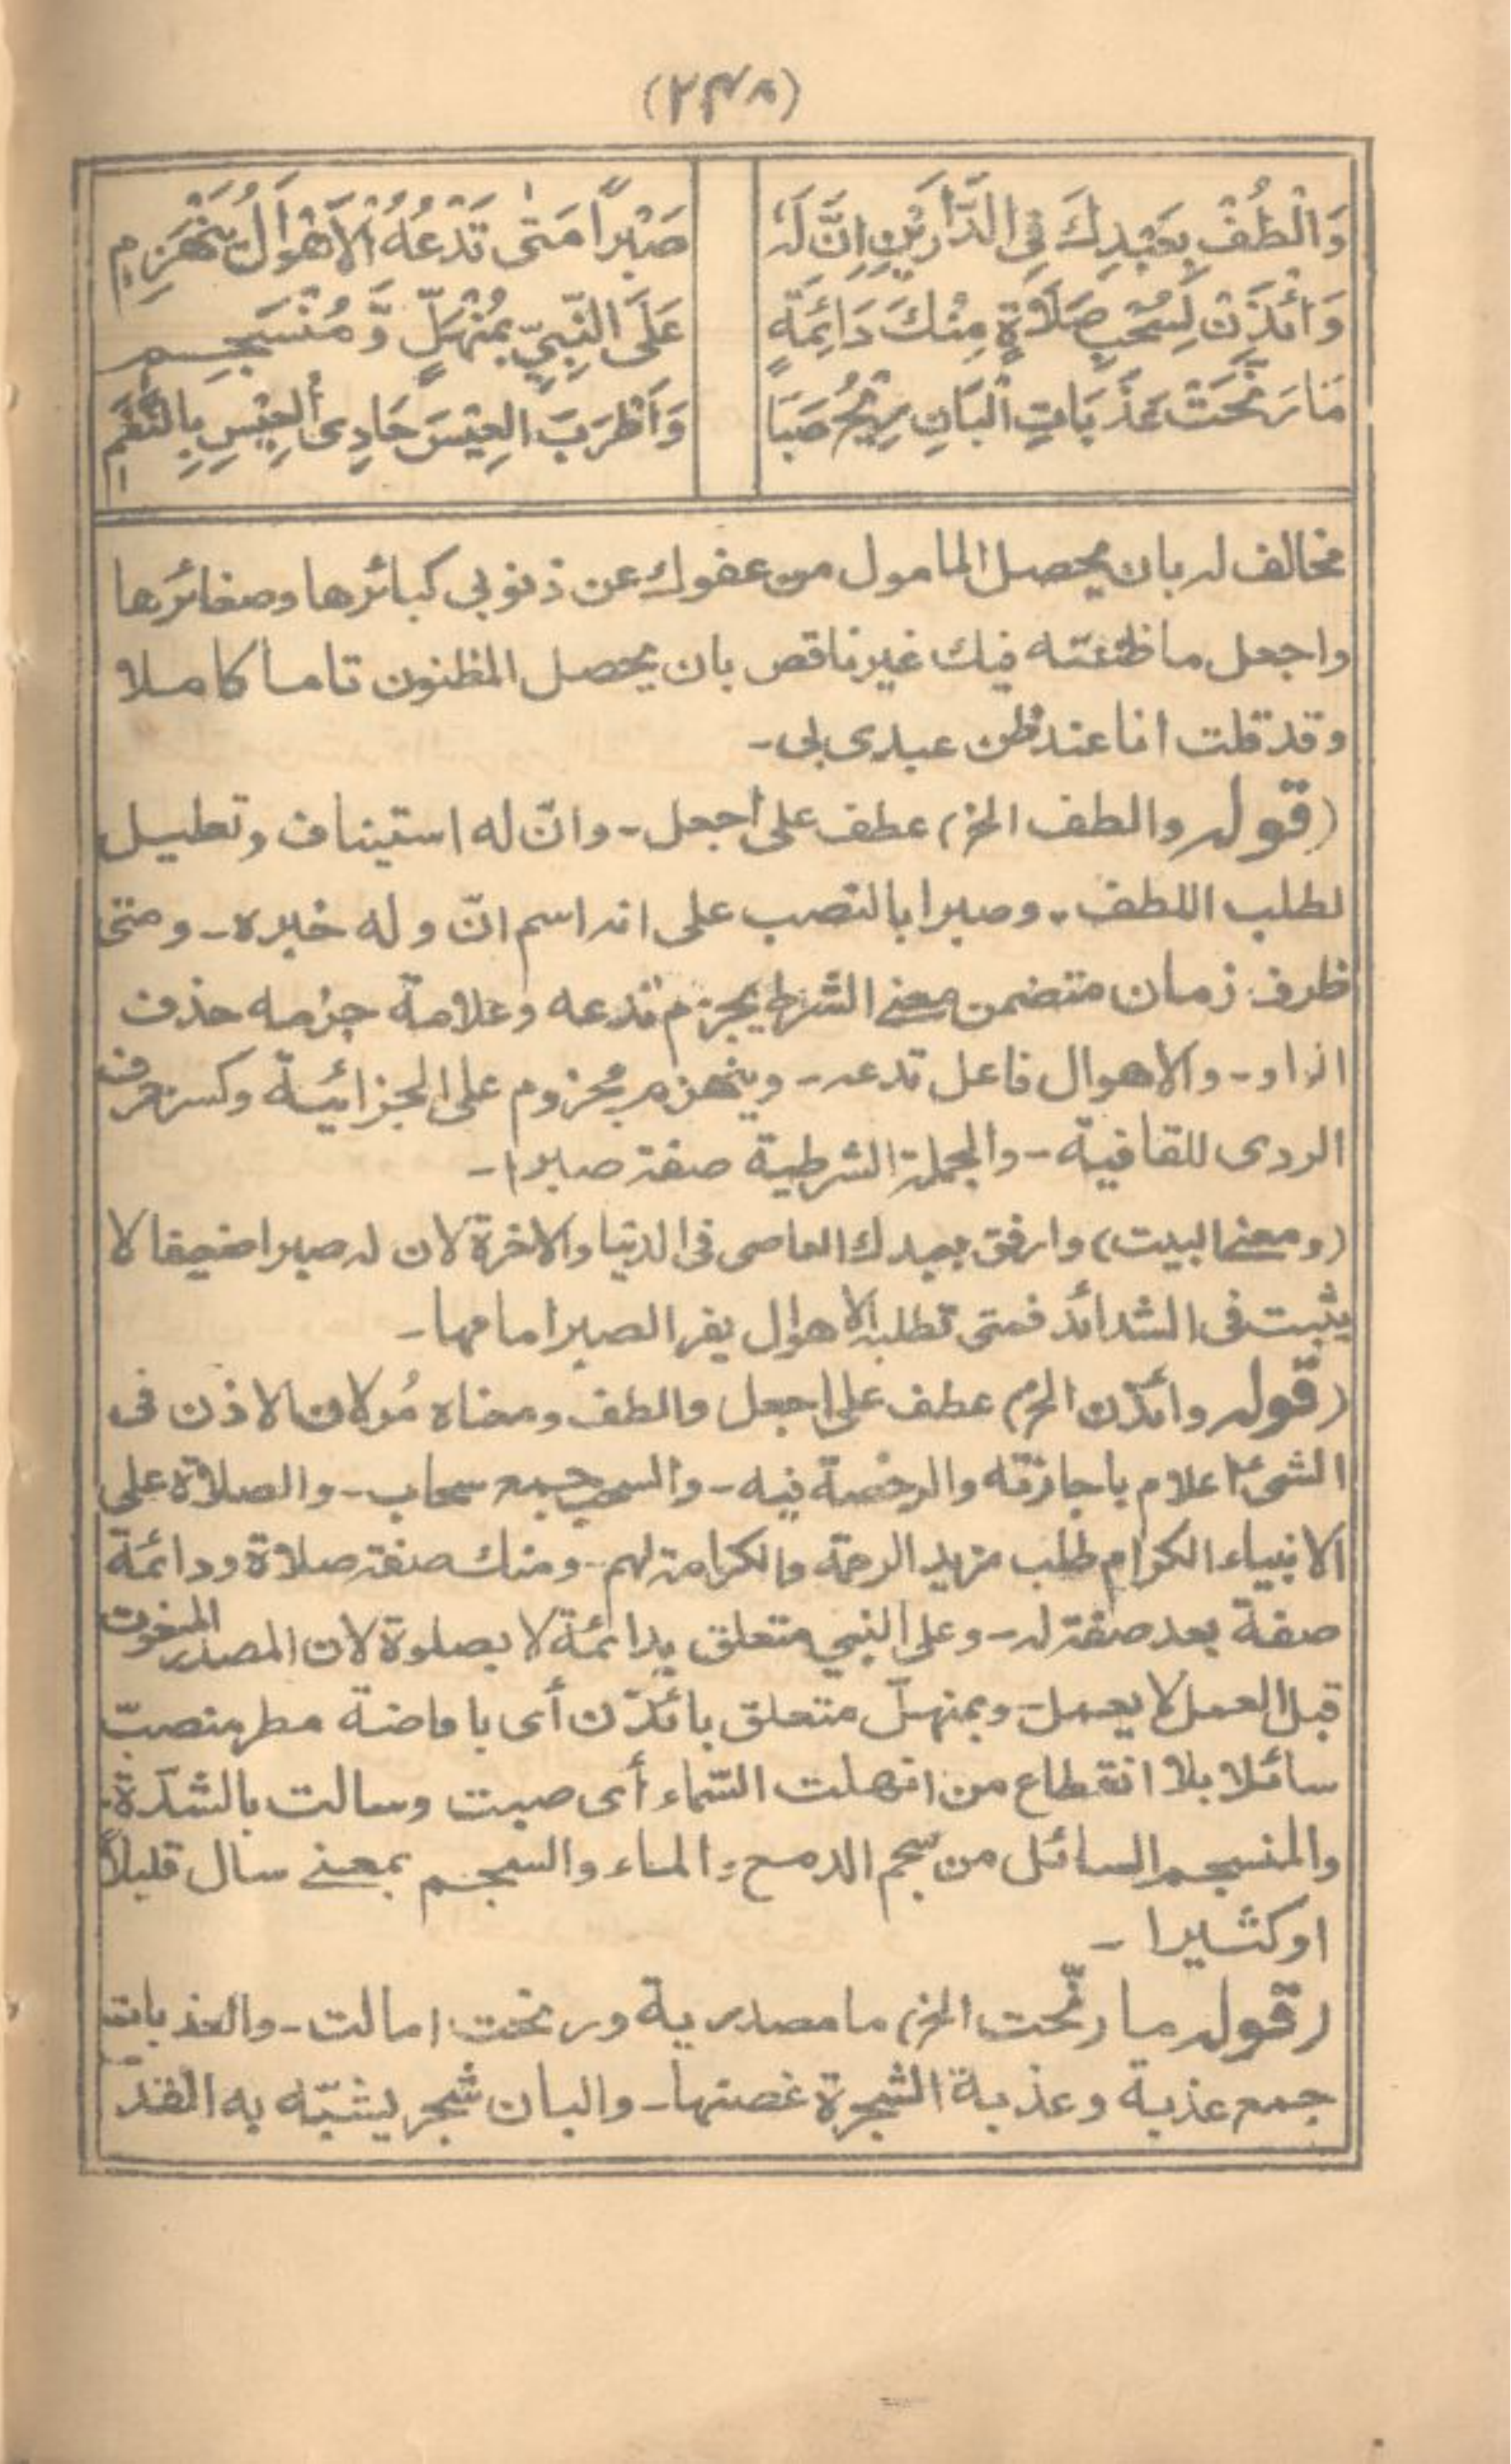 (٢٣٨)
وَالْطُفْ بِعَبْدِكَ فِي الدَّارَيْنِ اِنَّ لَهٗ صَبْرًا مَتٰى تَدْعُهُ الْاَهْوَالُ يَنْهَزِمِ
وَائْذَنْ لِسُحْبِ صَلَاةٍ مِنْكَ دَائِمَةٍ عَلَى النَّبِيِّ بِمُنْهَلٍّ وَّ مُنْسَجِمِ
مَا رَنَّحَتْ عَذَبَاتِ الْبَانِ رِيْحُ صَبَا وَاَطْرَبَ الْعِيْسَ حَادِى الْعِيْسِ بِالنَّغَمِ
مخالف له بان يحصل المامول من عفوك عن ذنوبى كبائرها وصغائرها
واجعل ما ظننته فيك غير ناقص بان يحصل المظنون تاما كاملا
وقد قلت انا عند ظن عبدى بى-
(قوله والطف الخ) عطف على اجعل- وانّ له استيناف وتعليل
لطلب اللطف- وصبرا بالنصب على انه اسم انّ وله خبره- ومتى
ظرف زمان متضمن معنى الشرط يجزم تدعه وعلامة جزمه حذف
الواو- والاهوال فاعل تدعه- وينهزم مجزوم على الجزائية وكسر حرف
الردى للقافية- والجملة الشرطية صفة صبرا-
(ومعنى البيت) وارفق بعبدك العاصى فى الدنيا والاخرة لان له صبرا ضعيفا لا
يثبت فى الشدائد فمتى تطلبه الاهوال يفر الصبر امامها-
(قوله وائذن الخ) عطف على اجعل والطف ومعناه مُر لان الاذن فى
الشئ اعلام باجازته والرخصة فيه- والسحب جمع سحاب- والصلاة على
الانبياء الكرام طلب مزيد الرحمة والكرامة لهم- ومنك صفة صلاة ودائمة
صفة بعد صفة له- وعلى النبي متعلق بدائمة لا بصلوة لان المصدر المنعوت
قبل العمل لا يعمل- وبمنهلّ متعلق بائذن أى بافاضة مطر منصبّ
سائلا بلا انقطاع من انهلت السّماء أى صبت وسالت بالشدّة-
والمنسجم السائل من سجم الدمع والماء والسجم بمعنى سال قليلاً
او كثيرا -
(قوله ما رنّحت الخ) ما مصدرية ورنحت امالت- والعذبات
جمع عذبة وعذبة الشجرة غصنها- والبان شجر يشبّه به القدّ